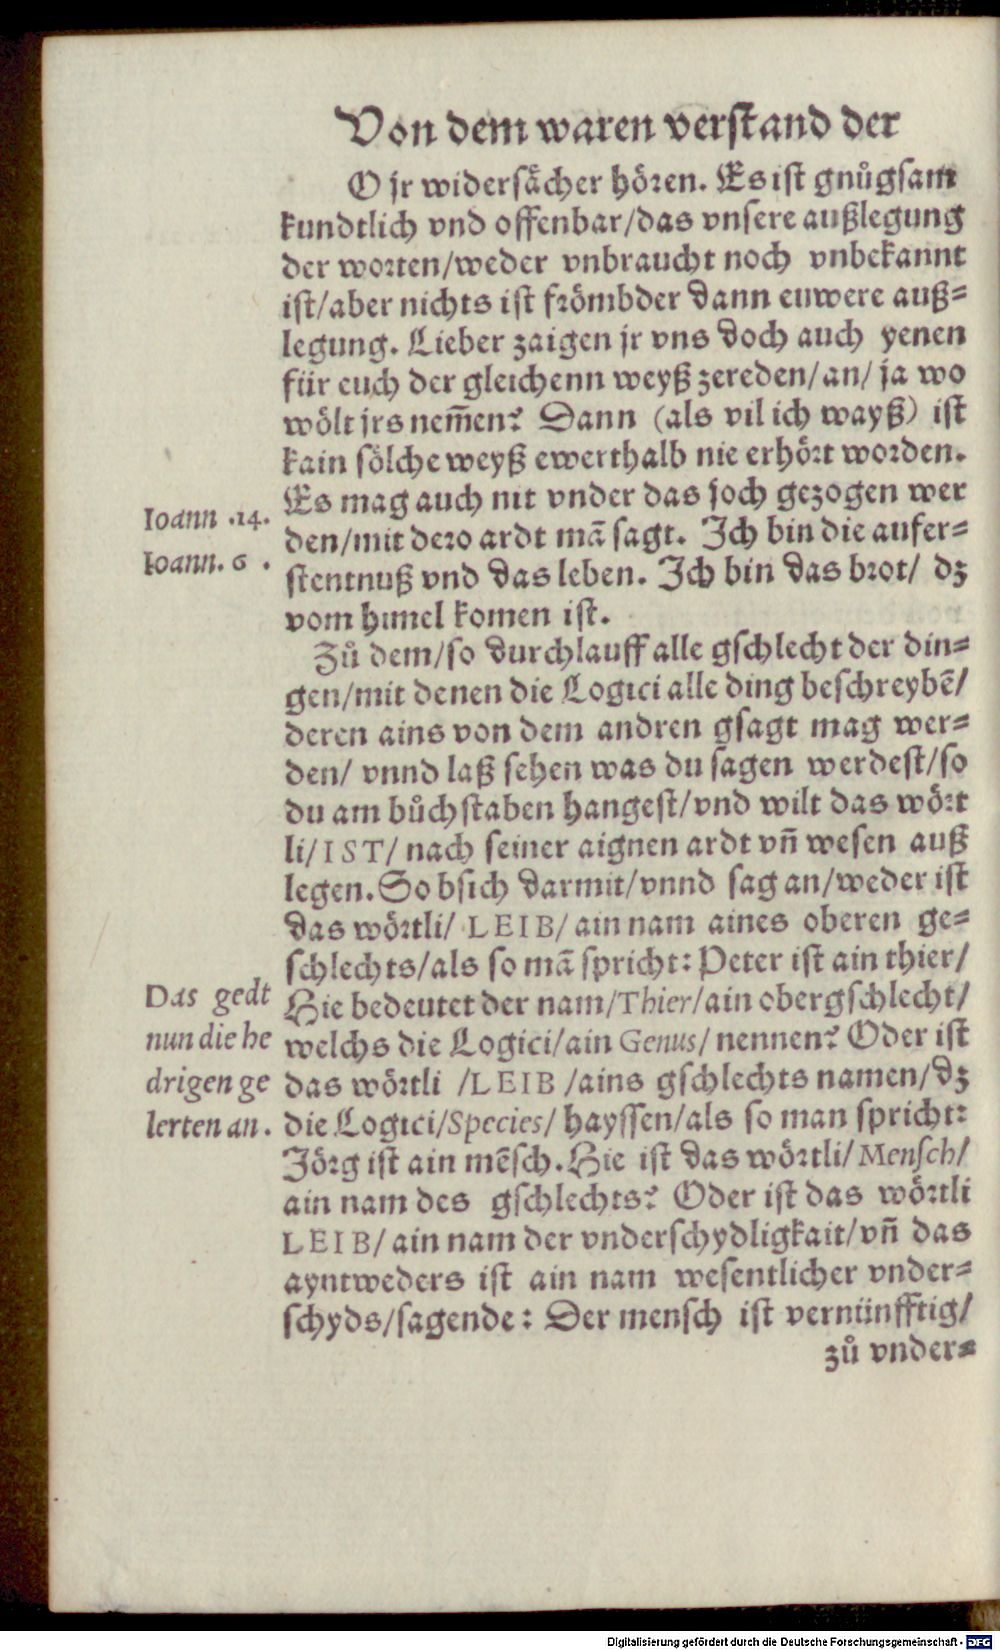 Von dem waren verstand der
O jr widersächer hören. Es ist gnůgsam
kundtlich vnd offenbar/das vnsere außlegung
der worten/weder vnbraucht noch vnbekannt
ist/aber nichts ist frömbder dann euwere auß=
legung. Lieber zaigen jr vns doch auch yenen
für euch der gleichenn weyß zereden/an/ ja wo
wölt jrs nem̃en? Dann (als vil ich wayß) ist
kain sölche weyß ewerthalb nie erhört worden.
Es mag auch nit vnder das joch gezogen wer
Ioann .14.
den/mit dero ardt mã sagt. Ich bin die aufer=
Ioann. 6 .
stentnuß vnd das leben. Ich bin das brot/ dz
vom himel komen ist.
Zů dem/so durchlauff alle gschlecht der din=
gen/mit denen die Logici alle ding beschreybẽ/
deren ains von dem andren gsagt mag wer=
den/ vnnd laß sehen was du sagen werdest/so
du am bůchstaben hangest/vnd wilt das wört
li/IST/ nach seiner aignen ardt vñ wesen auß
legen. So bsich darmit/vnnd sag an/weder ist
das wörtli/ LEIB/ ain nam aines oberen ge=
schlechts/als so mã spricht: Peter ist ain thier/
Das gedt
nun die he
drigen ge
lerten an.
Hie bedeutet der nam/Thier/ain obergschlecht/
welchs die Logici/ain Genus/ nennen? Oder ist
das wörtli /LEIB /ains gschlechts namen/dz
die Logici/Species/ hayssen/als so man spricht:
Jörg ist ain mẽsch. Hie ist das wörtli/ Mensch/
ain nam des gschlechts? Oder ist das wörtli
LEIB/ ain nam der vnderschydligkait/vñ das
ayntweders ist ain nam wesentlicher vnder=
schyds/sagende: Der mensch ist vernünfftig/
zů vnder=
Digitalisierung gefördert durch die Deutsche Forschungsgemeinschaft - DFG